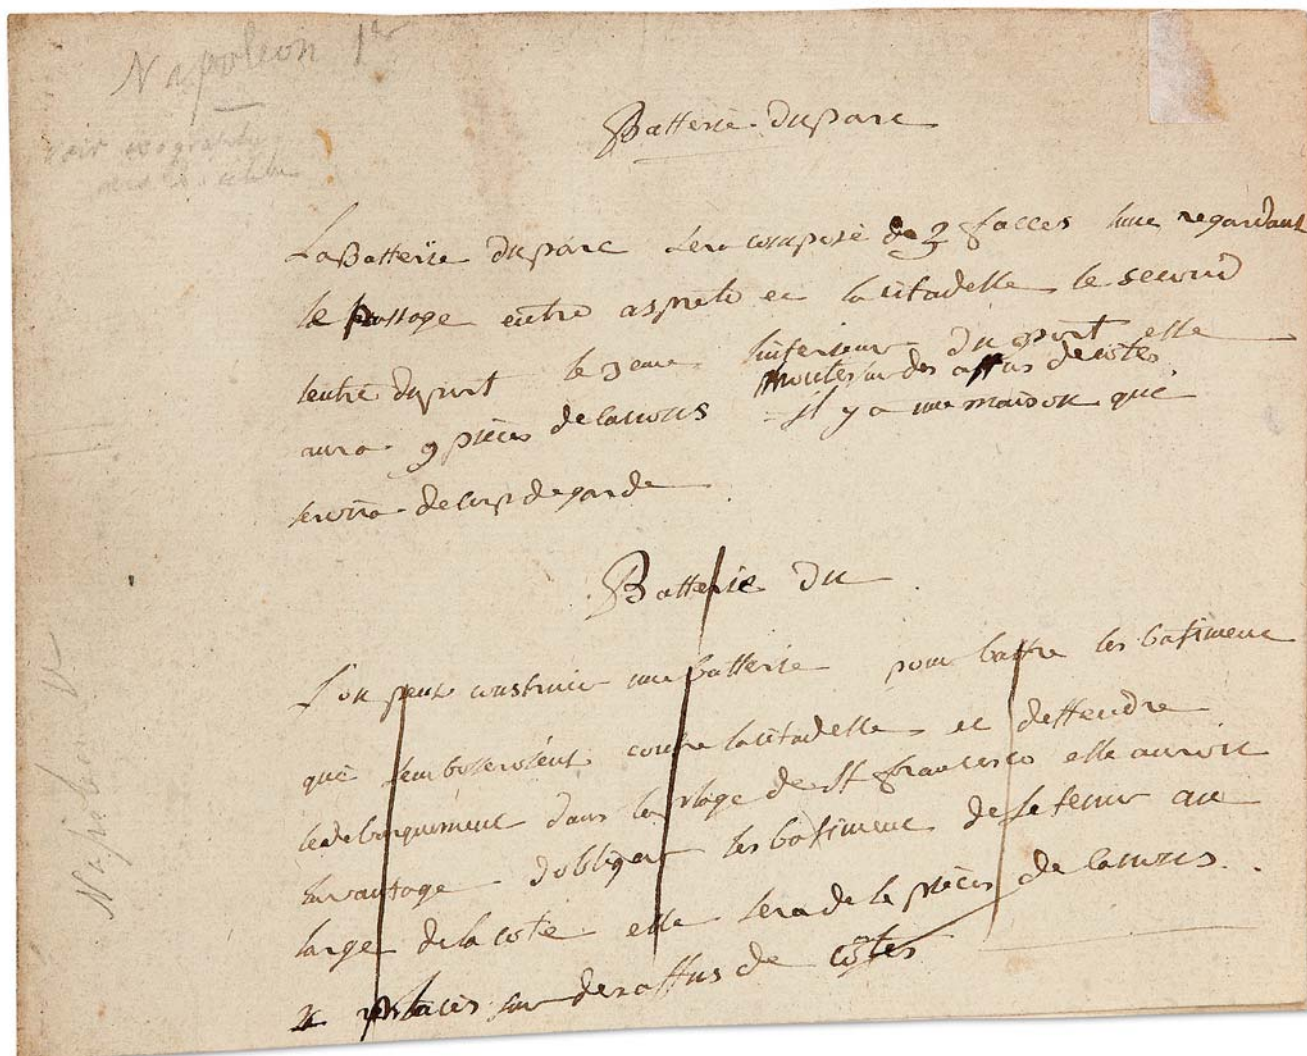 Napoléon 1er
Voir
Batterie du parc
La Batterie du parc sera composé de 3 facces lune regardant
le passage entre aspreto et la citadelle le second
lentré du port le 3eme linterieur du port elle
aura 9 pièces de canons montés sur des affus de cotes
il y a une maison que
servira de corp de garde
Batterie du
L'on peut construir une batterie pour battre les batiment
que semboseroient contre la citadelle et deffendre
le debarquement dans la plage de St francesco elle auroit
lavantage dobliger les batiment de se tenir au
large de la cote elle sera de pièces de canons
placés sur des affus de côtes